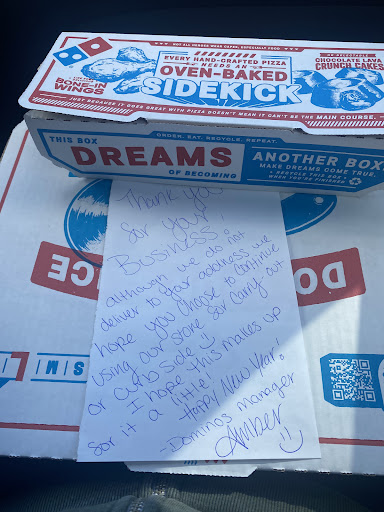 NOT ALL HEROES WEAR CAPES. ESPECIALLY FOOD
EVERY HAND-CRAFTED PIZZA
NEEDS AN
OVEN-BAKED
SIDEKICK
BONE-IN
WINGS
DELECTABLE
CHOCOLATE LAVA
CRUNCH CAKES
JUST BECAUSE IT GOES GREAT WITH PIZZA DOESN'T MEAN IT CAN'T BE THE MAIN COURSE.
ORDER. EAT. RECYCLE. REPEAT.
THIS BOX
DREAMS
OF BECOMING
ANOTHER BOX
MAKE DREAMS COME TRUE.
RECYCLE THIS BOX
WHEN YOU'RE FINISHED
Thank you
for your
Business.
Although we do not
deliver to your address we
hope you choose to continue
using our store for carry out
or curb side :)
I hope this makes up
for it a little!
Happy New Year!
- Dominos manager
Amber :)
DO
NCE
S M